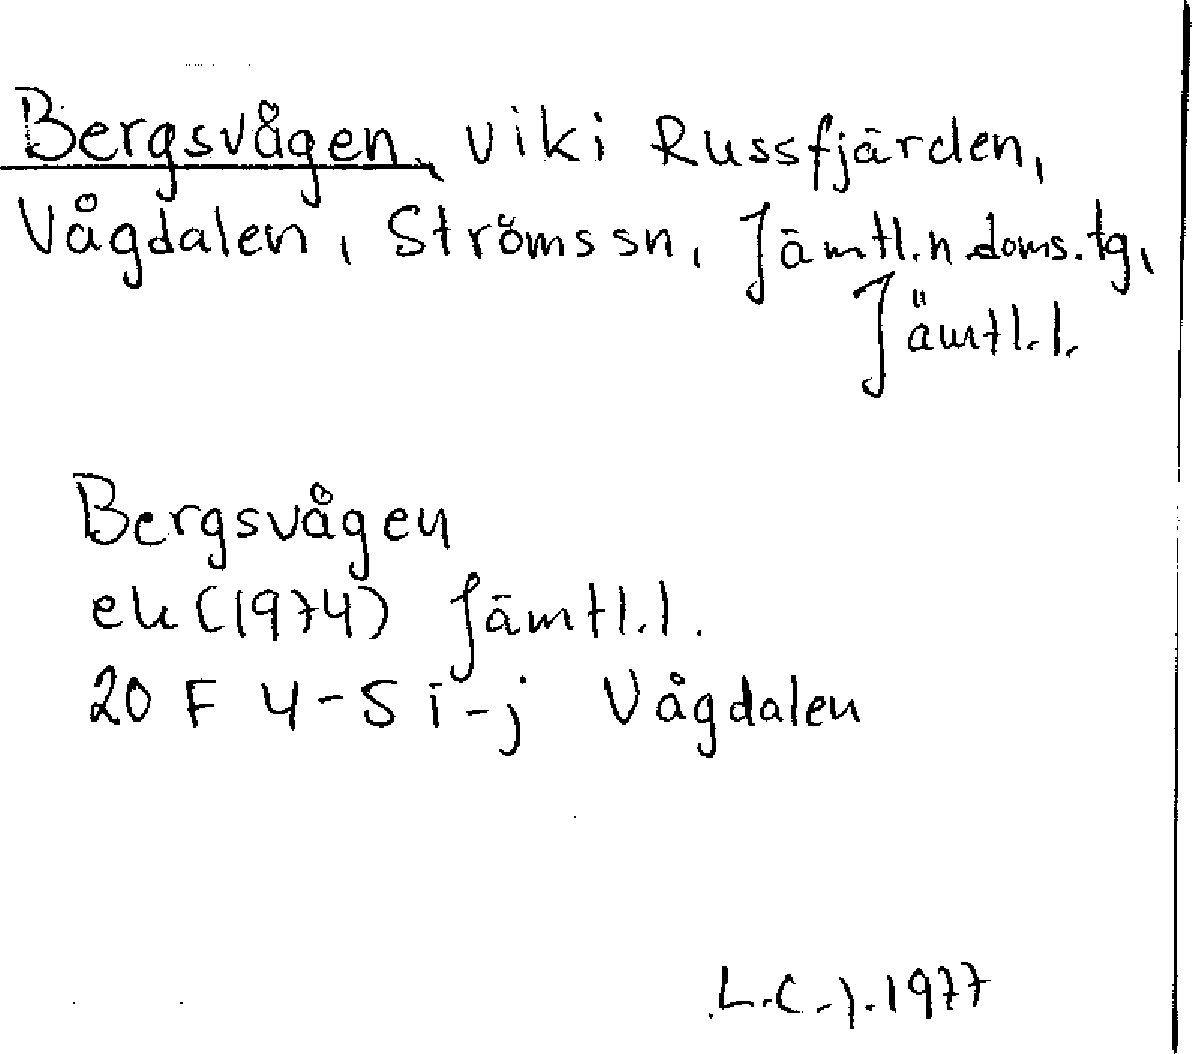 Bergsvågen, vik i Russfjärden,
Vågdalen, Ströms sn, Jämtl. n doms. tg,
Jämtl. l.
Bergsvågen
ek (1974) Jämtl. l.
20 F 4-5 i-j Vågdalen
L.C-j. 1977